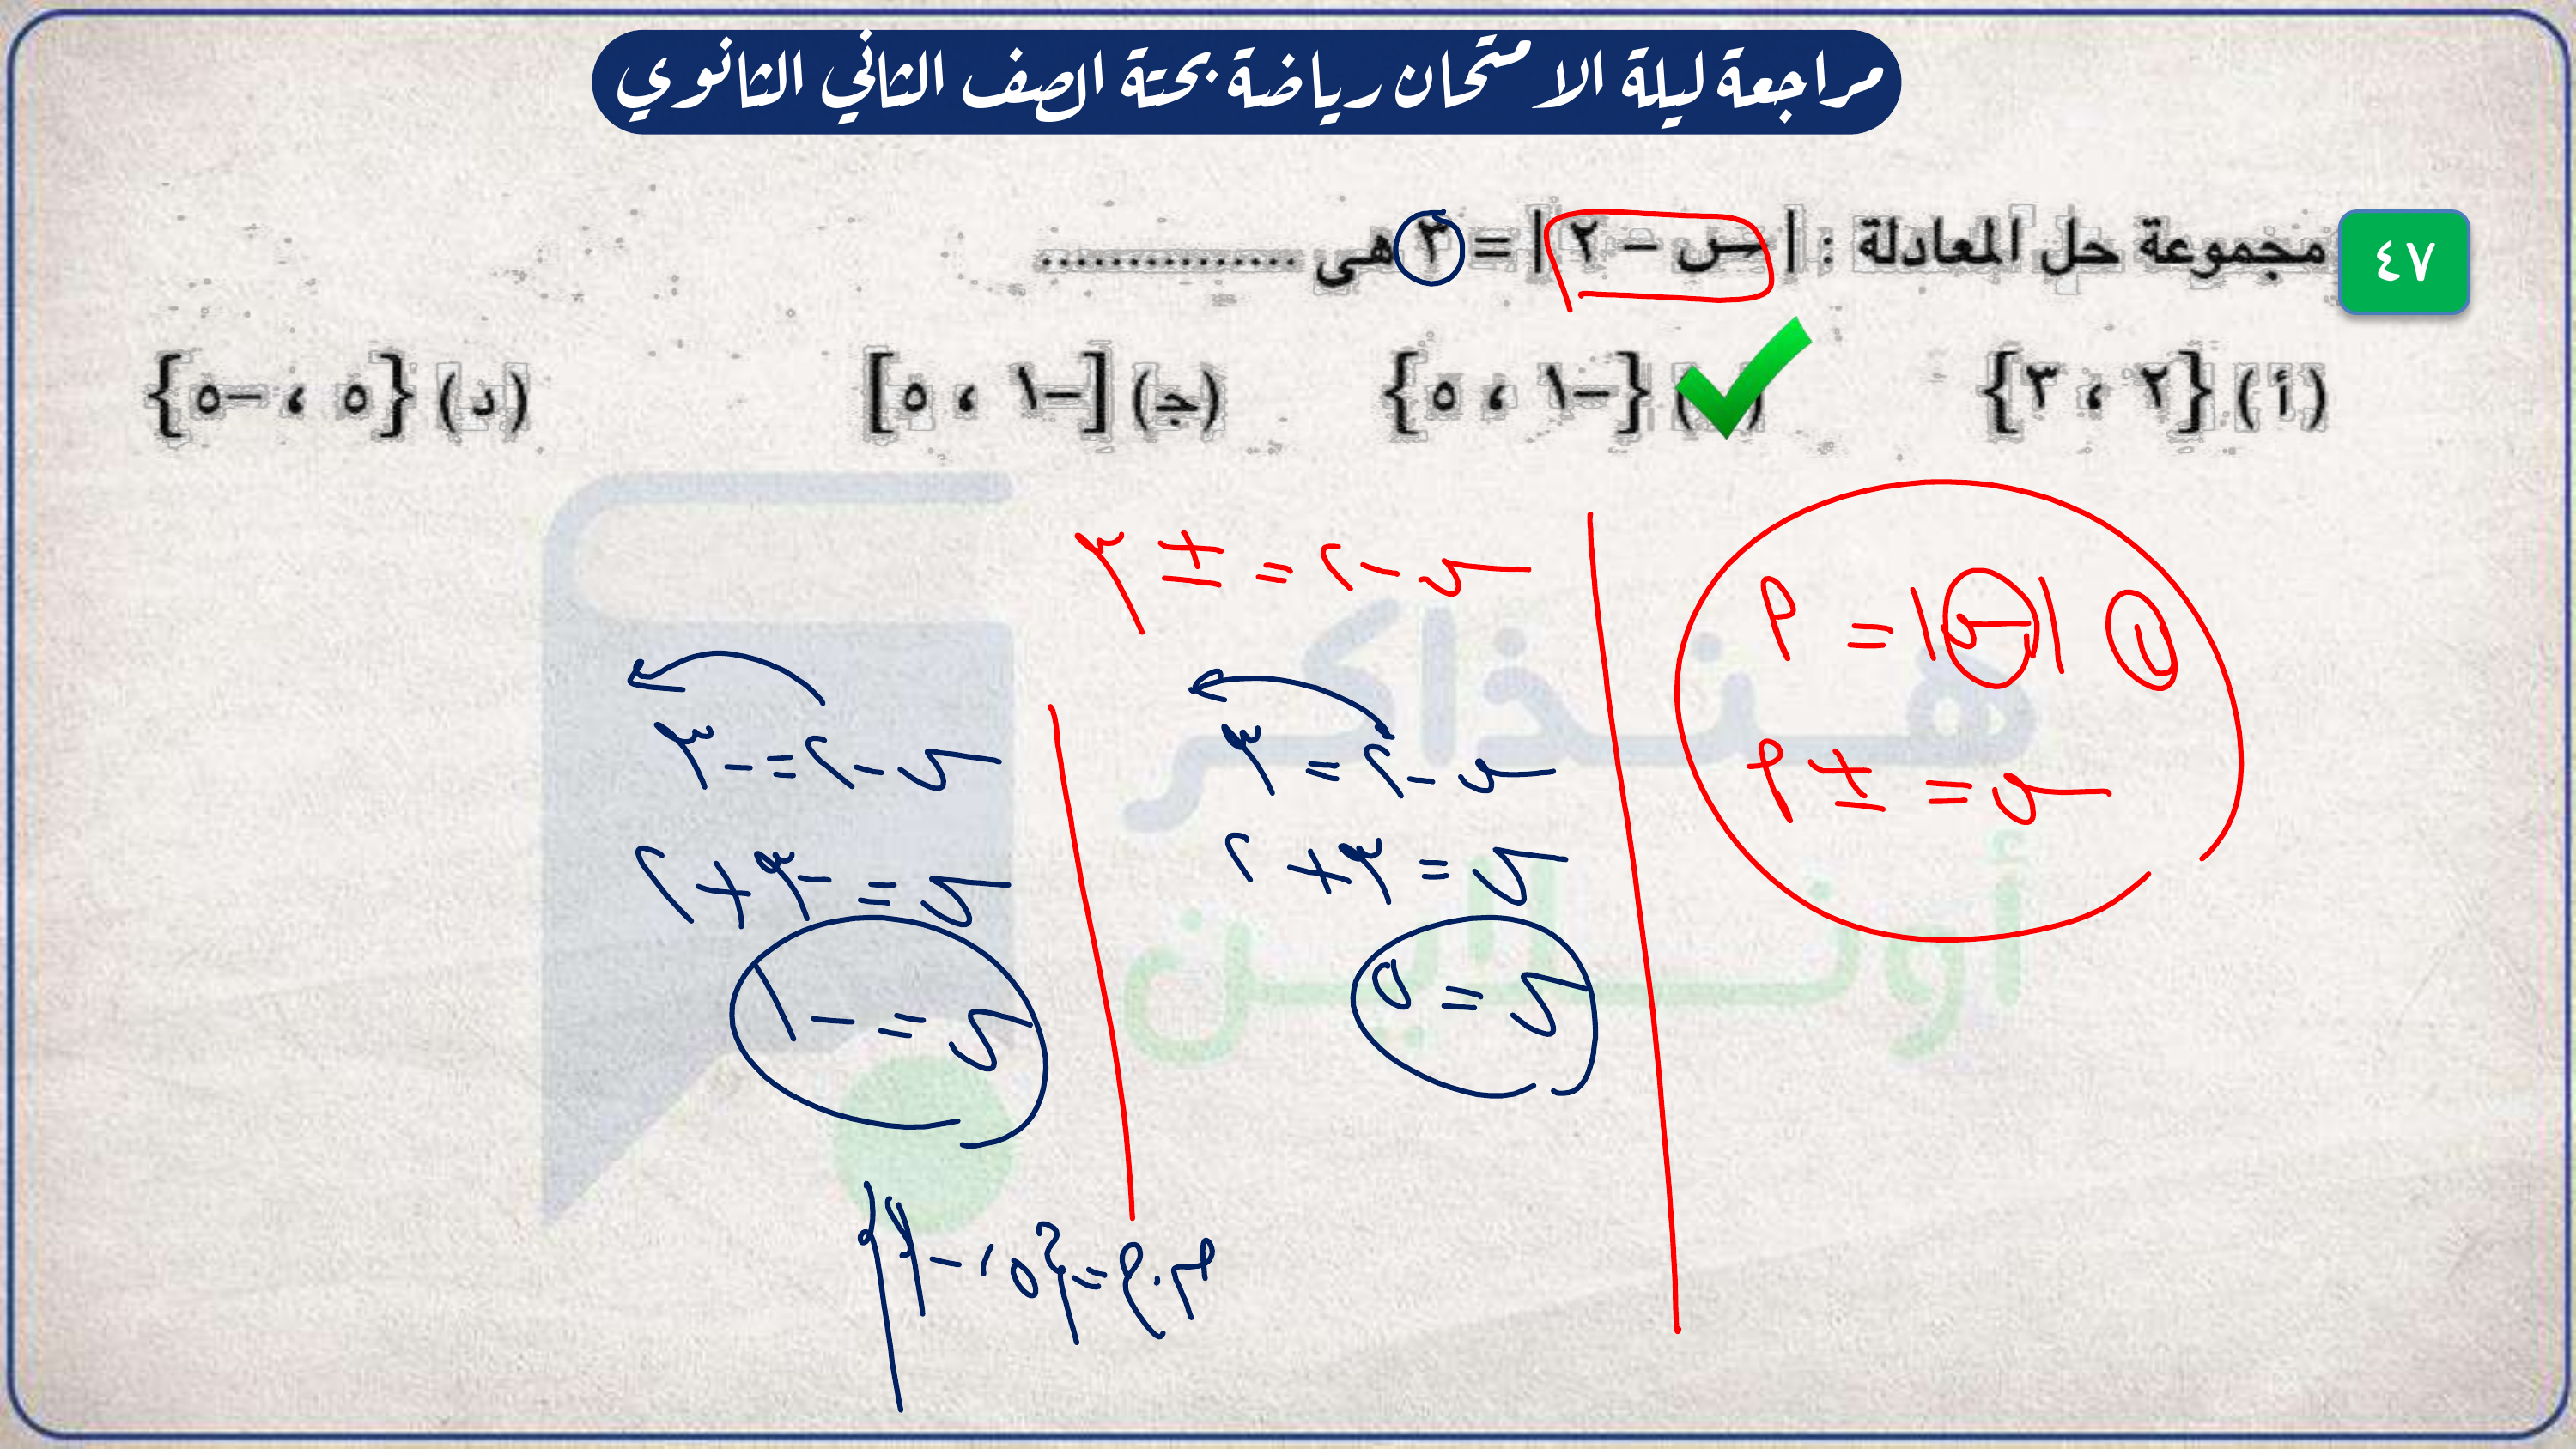 مراجعة ليلة الامتحان رياضة بحتة الصف الثاني الثانوي
٤٧ مجموعة حل المعادلة : | س − ٢ | = ٣ هى ...............
(أ) {٢ ، ٣} ( ) {−١ ، ٥} (جـ) [−١ ، ٥] (د) {٥ ، −٥}
|س| = م
س = ± م
س − ٢ = ± ٣
س − ٢ = ٣
س = ٣ + ٢
س = ٥
س − ٢ = − ٣
س = − ٣ + ٢
س = − ١
م.ح = {٥ ، − ١}
هنذاكر
أونلاين